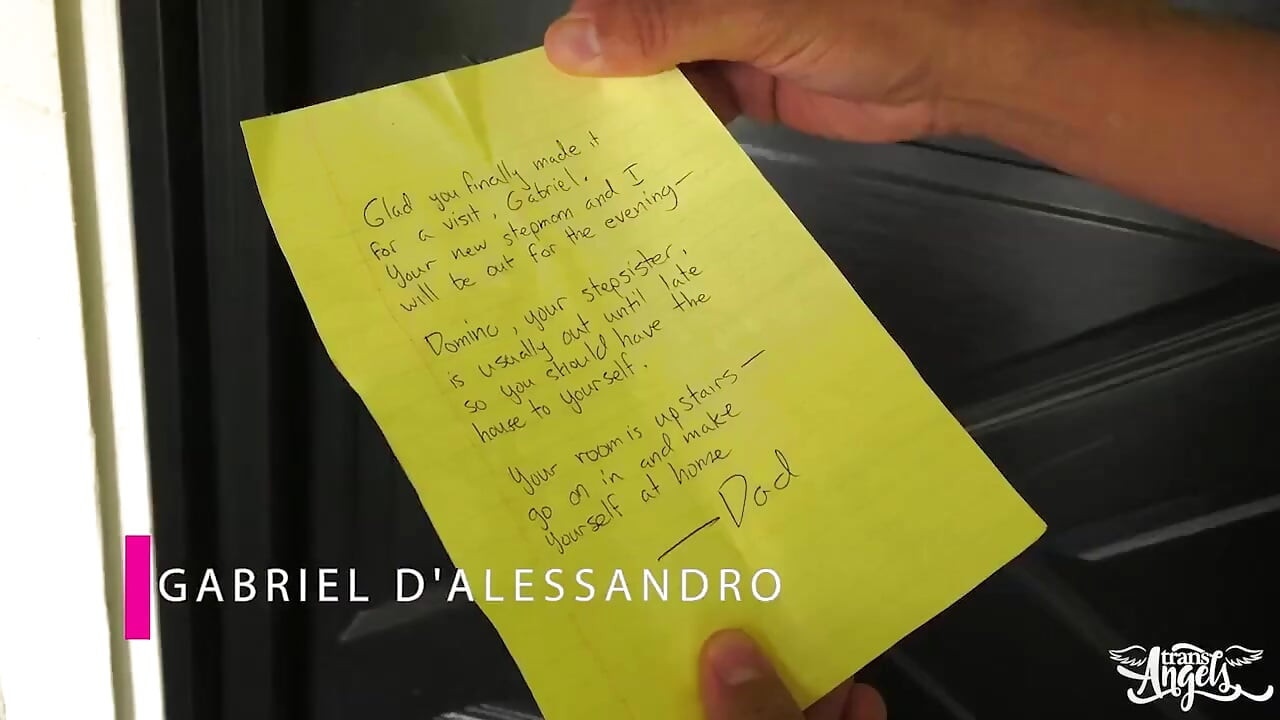 Glad you finally made it
for a visit, Gabriel.
Your new stepmom and I
will be out for the evening—
Domino, your stepsister,
is usually out until late
so you should have the
house to yourself.
Your room is upstairs—
go on in and make
yourself at home
—Dad
GABRIEL D'ALESSANDRO
trans
Angels